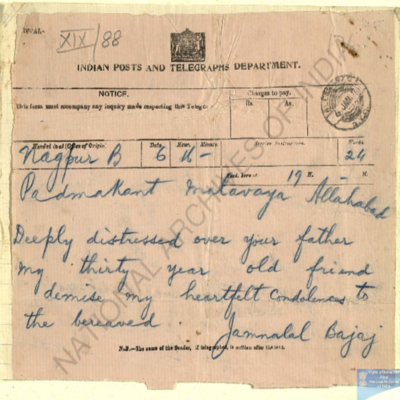 XIX/88
INDIAN POSTS AND TELEGRAPHS DEPARTMENT.
NOTICE.
Charges to pay.
This form must accompany any inquiry made respecting this Telegram.
Rs. As.
Handed in at (Office of Origin). Date. Hour. Minute. Service Instructions. Words.
Nagpur B 6 16 - 24
Recd. here at 19 H. - M.
Padmakant Malavaya Allahabad
Deeply distressed over your father
my thirty year old friend
demise my heartfelt condolences to
the bereaved.
Jamnalal Bajaj
N.B.—The name of the Sender, if telegraphed, is written after the text.
NATIONAL ARCHIVES OF INDIA